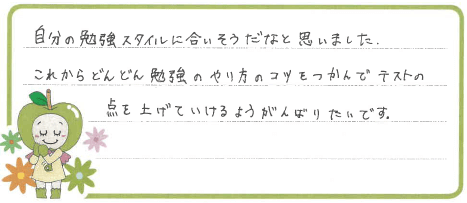 自分の勉強スタイルに合いそうだなと思いました.
これからどんどん勉強のやり方のコツをつかんでテストの
点を上げていけるようがんばりたいです。